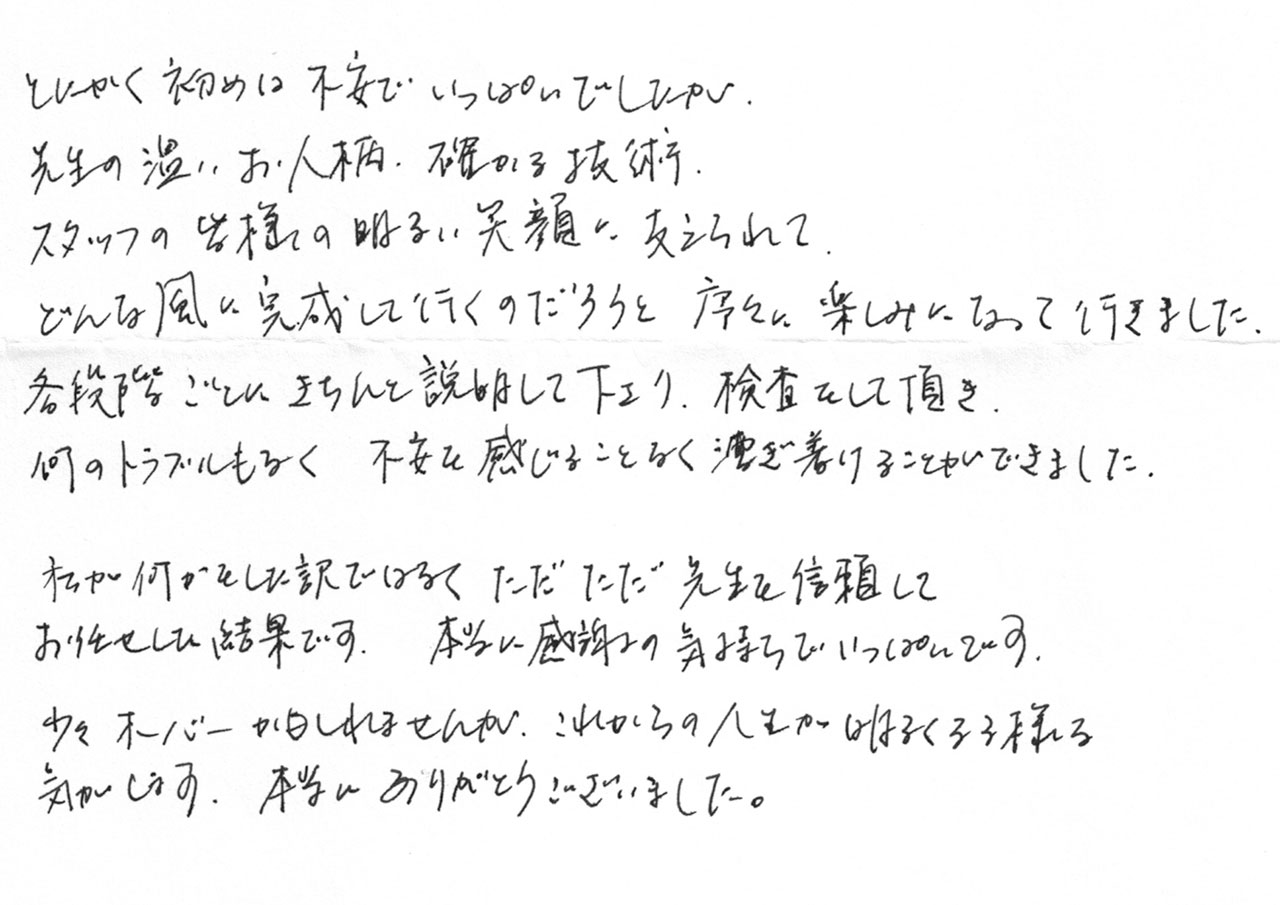 とにかく初めは不安でいっぱいでしたが、
先生の温いお人柄、確かな技術、
スタッフの皆様の明るい笑顔に支えられて、
どんな風に完成して行くのだろうと序々に楽しみになって行きました。
各段階ごとにきちんと説明して下さり、検査をして頂き、
何のトラブルもなく 不安を感じることなく漕ぎ着けることができました。
私が何かをした訳ではなく ただただ先生を信頼して
お任せした結果です。 本当に感謝の気持ちでいっぱいです。
少々オーバーかもしれませんが、これからの人生が明るくなる様な
気がします。 本当にありがとうございました。